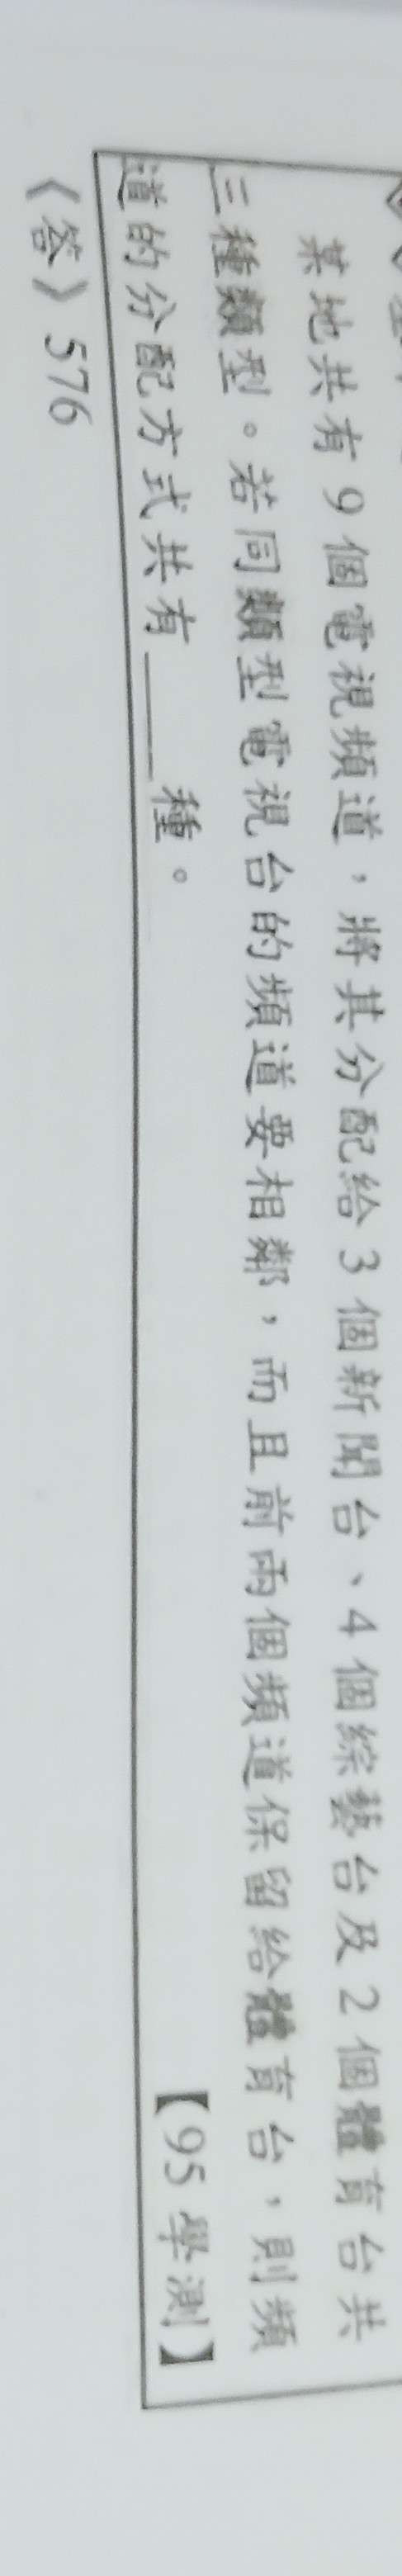 某地共有9個電視頻道，將其分配給3個新聞台、4個綜藝台及2個體育台共
三種類型。若同類型電視台的頻道要相鄰，而且前兩個頻道保留給體育台，則頻
道的分配方式共有____種。
【95學測】
《答》576